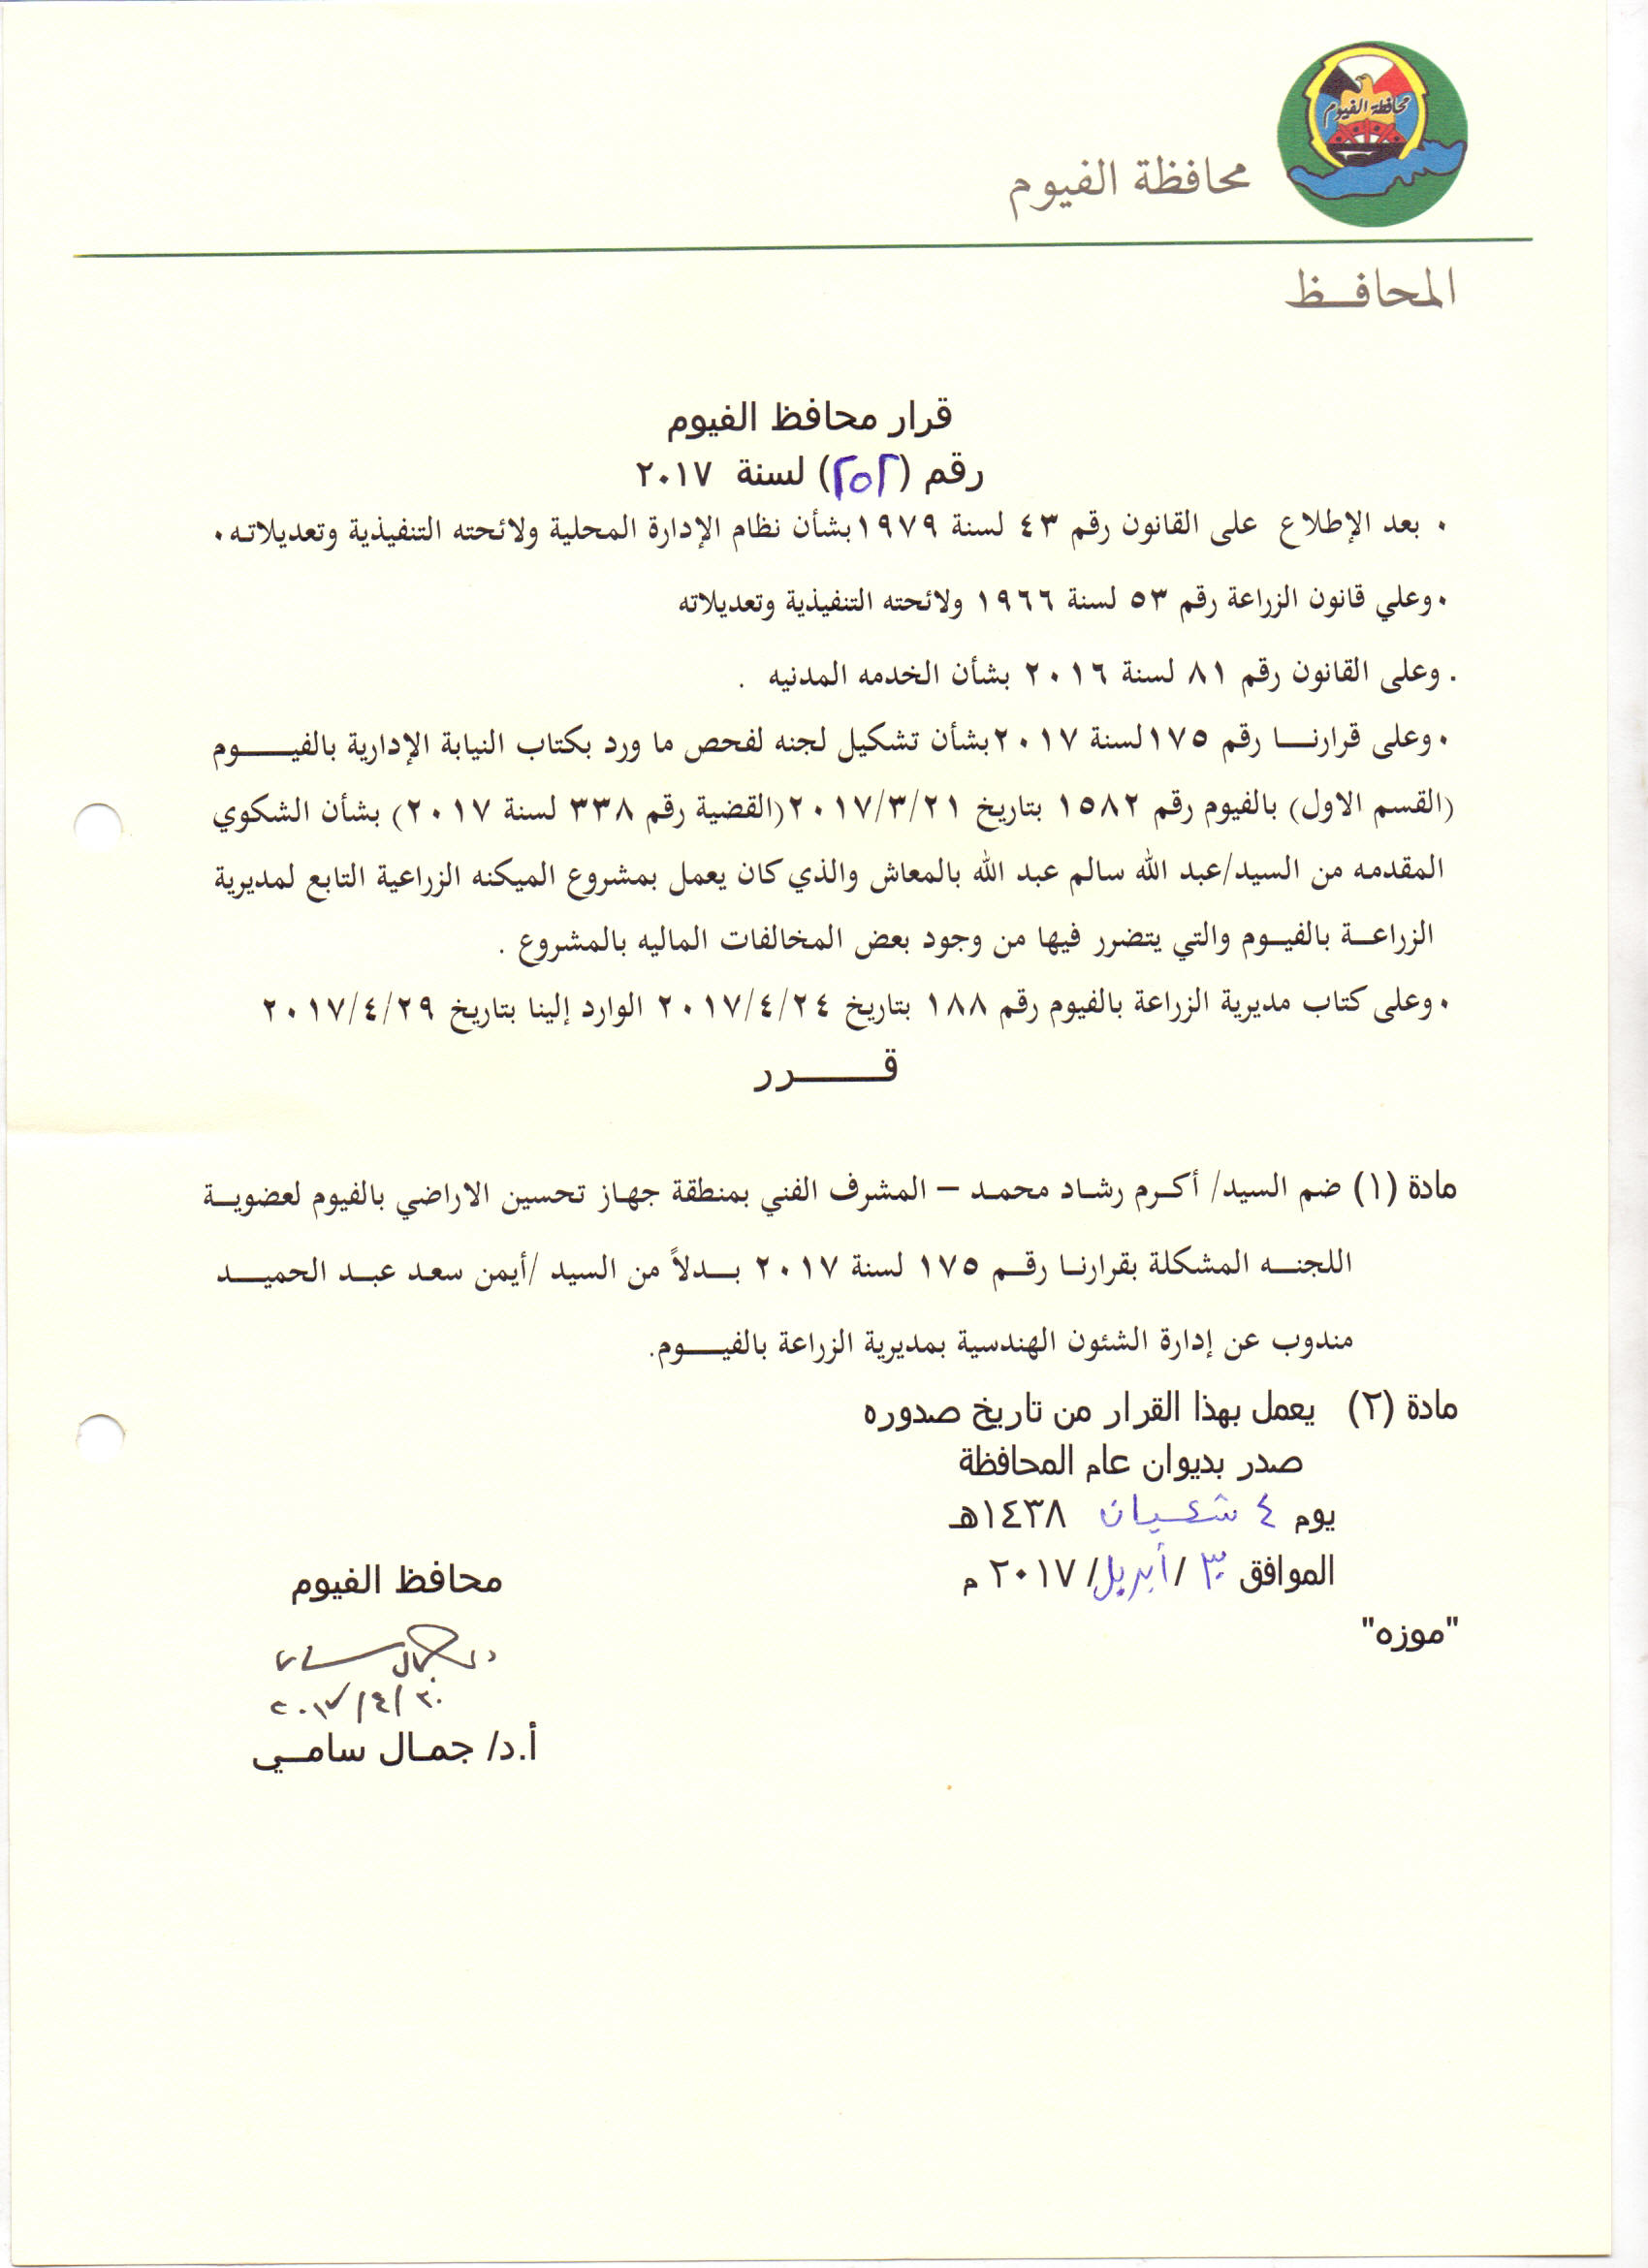 محافظة الفيوم
محافظة الفيوم
المحافــظ
قرار محافظ الفيوم
رقم (٢٥٢) لسنة ٢٠١٧
٠ بعد الإطلاع على القانون رقم ٤٣ لسنة ١٩٧٩بشأن نظام الإدارة المحلية ولائحته التنفيذية وتعديلاته٠
٠وعلي قانون الزراعة رقم ٥٣ لسنة ١٩٦٦ ولائحته التنفيذية وتعديلاته
. وعلى القانون رقم ٨١ لسنة ٢٠١٦ بشأن الخدمه المدنيه .
٠وعلى قرارنــا رقم ١٧٥لسنة ٢٠١٧بشأن تشكيل لجنه لفحص ما ورد بكتاب النيابة الإدارية بالفيــــوم
(القسم الاول) بالفيوم رقم ١٥٨٢ بتاريخ ٢٠١٧/٣/٢١(القضية رقم ٣٣٨ لسنة ٢٠١٧) بشأن الشكوي
المقدمه من السيد/عبد الله سالم عبد الله بالمعاش والذي كان يعمل بمشروع الميكنه الزراعية التابع لمديرية
الزراعــة بالفيــوم والتي يتضرر فيها من وجود بعض المخالفات الماليه بالمشروع .
٠وعلى كتاب مديرية الزراعة بالفيوم رقم ١٨٨ بتاريخ ٢٠١٧/٤/٢٤ الوارد إلينا بتاريخ ٢٠١٧/٤/٢٩
قــــــرر
مادة (١) ضم السيد/ أكـرم رشـاد محمـد – المشرف الفني بمنطقة جهـاز تحسين الاراضي بالفيوم لعضويـة
اللجنــه المشكلة بقرارنـا رقــم ١٧٥ لسنة ٢٠١٧ بــدلاً من السيد /أيمن سعـد عبـد الحميـــد
مندوب عن إدارة الشئون الهندسية بمديرية الزراعة بالفيــــوم.
مادة (٢) يعمل بهذا القرار من تاريخ صدوره
صدر بديوان عام المحافظة
يوم ٤ شعبان ١٤٣٨هـ
الموافق ٣٠ /أبريل/ ٢٠١٧ م
محافظ الفيوم
"موزه"
د. جمال سامى
٢٠١٧/٤/٣٠
أ.د/ جمـال سامــي